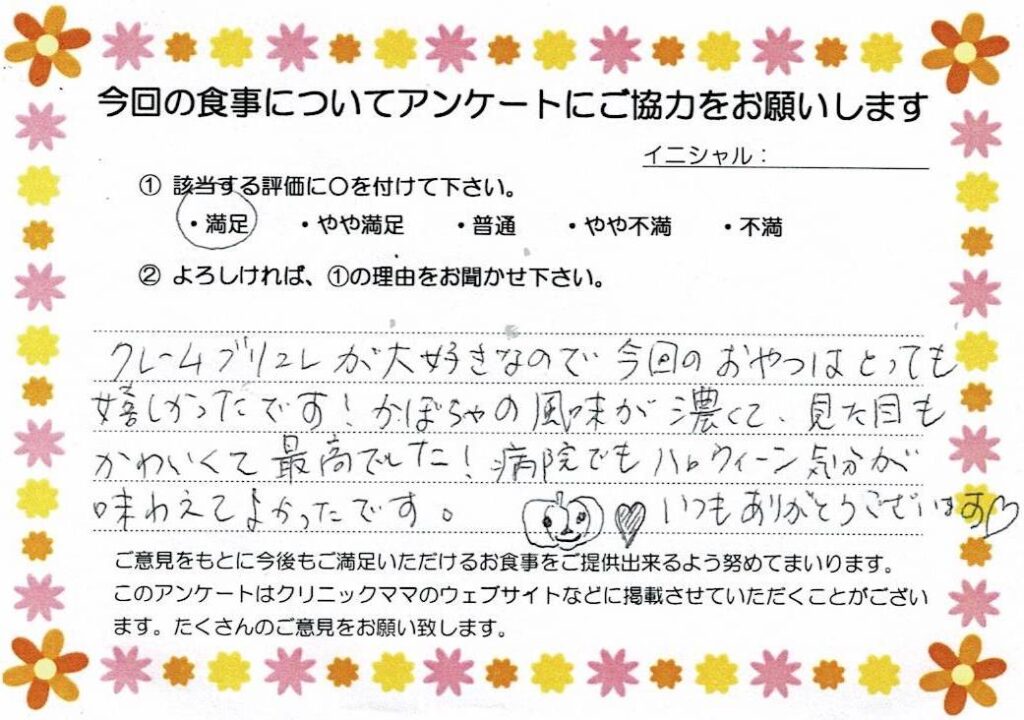 今回の食事についてアンケートにご協力をお願いします
イニシャル：
① 該当する評価に〇を付けて下さい。
・満足 ・やや満足 ・普通 ・やや不満 ・不満
② よろしければ、①の理由をお聞かせ下さい。
クレームブリュレが大好きなので今回のおやつはとっても
嬉しかったです！かぼちゃの風味が濃くて、見た目も
かわいくて最高でした！病院でもハロウィーン気分が
味わえてよかったです。 いつもありがとうございます
ご意見をもとに今後もご満足いただけるお食事をご提供出来るよう努めてまいります。
このアンケートはクリニックママのウェブサイトなどに掲載させていただくことがござい
ます。たくさんのご意見をお願い致します。